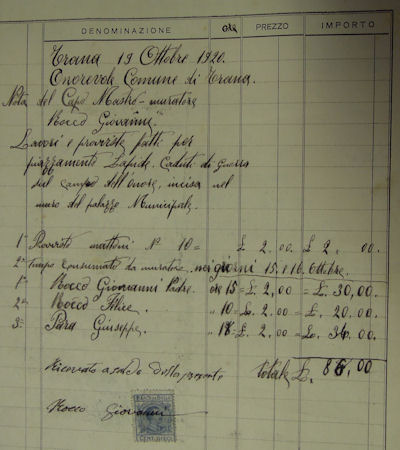 DENOMINAZIONE ORE PREZZO IMPORTO
Trana 19 Ottobre 1920.
Onorevole Comune di Trana.
Nota del Capo Mastro-muratore
Rocco Giovanni
Lavori e provviste fatti per
piazzamento Lapide. Caduti di Guerra
sul campo dell'onore, incisa nel
muro del palazzo Municipale.
1º Provviste mattoni Nº 10 = £ 2,00. £ 2, 00.
2º Tempo consumato da muratore. nei giorni 15 e 16. Ottobre.
1º Rocco Giovanni Padre. ore 15 = £. 2,00 = £. 30,00.
2º Rocco Felice. " 10 = £. 2,00 = £. 20,00.
3º Para Giuseppe. " 18 = £. 2,00 = £. 36,00.
totale £. 86,00
Ricevuto a saldo della presente
Rocco Giovanni
CENTESIMI